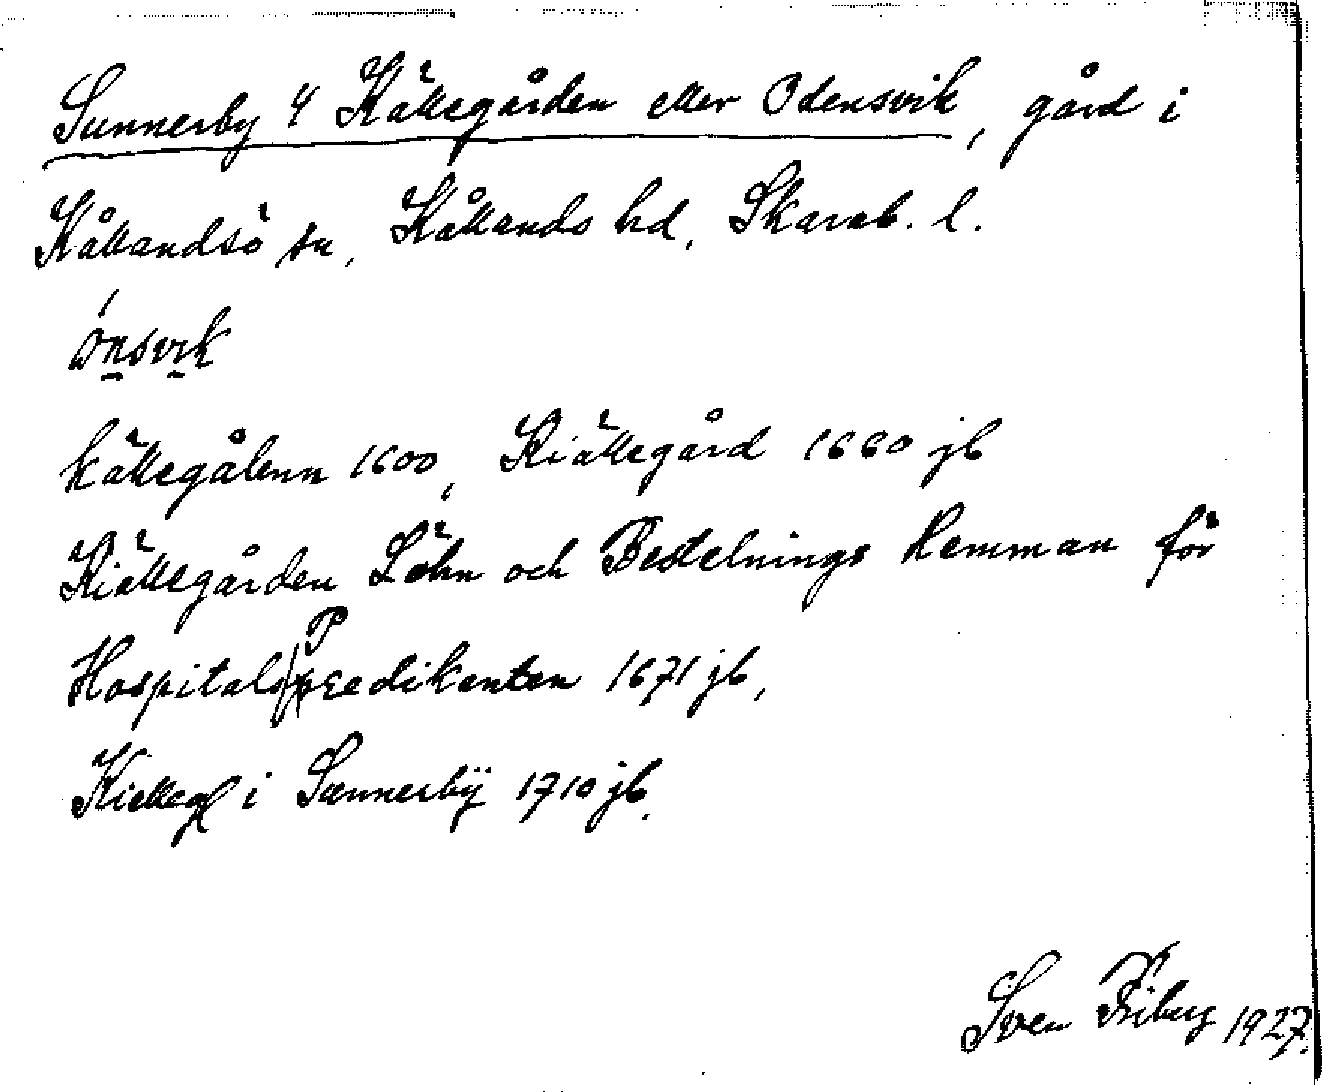 Sunnerby 4 Källegården eller Odensvik, gård i
Kållandsö sn, Kållands hd, Skarab. l.
ónsvik
källegålenn 1600, Kiällegård 1660 jb
Kiällegården Löhn och Bestelnings Hemman för
Hospitals Predikanten 1671 jb,
Kielleg i Sunnerbÿ 1710 jb.
Sven Friberg 1927.